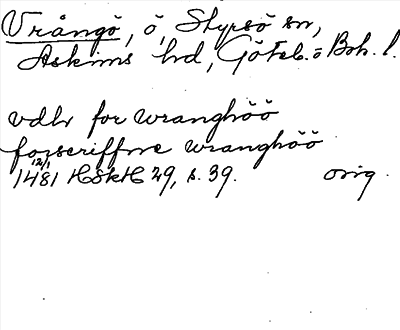 Vrångö, ö, Styrsö sn,
Askims hd, Göteb. o Boh. l.
vdhr for wranghöö
forscriffne wranghöö
12/1
1481 HSkH 29, s. 39. orig.